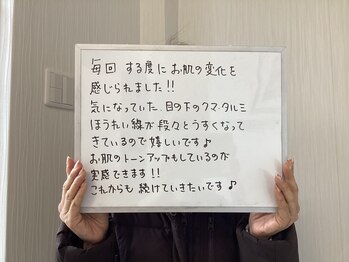 毎回 する度に お肌の変化を
感じられました!!
気になっていた、目の下のクマ・タルミ
ほうれい線が 段々とうすくなって
きているので 嬉しいです♪
お肌のトーンアップもしているのが
実感できます!!
これからも 続けていきたいです♪